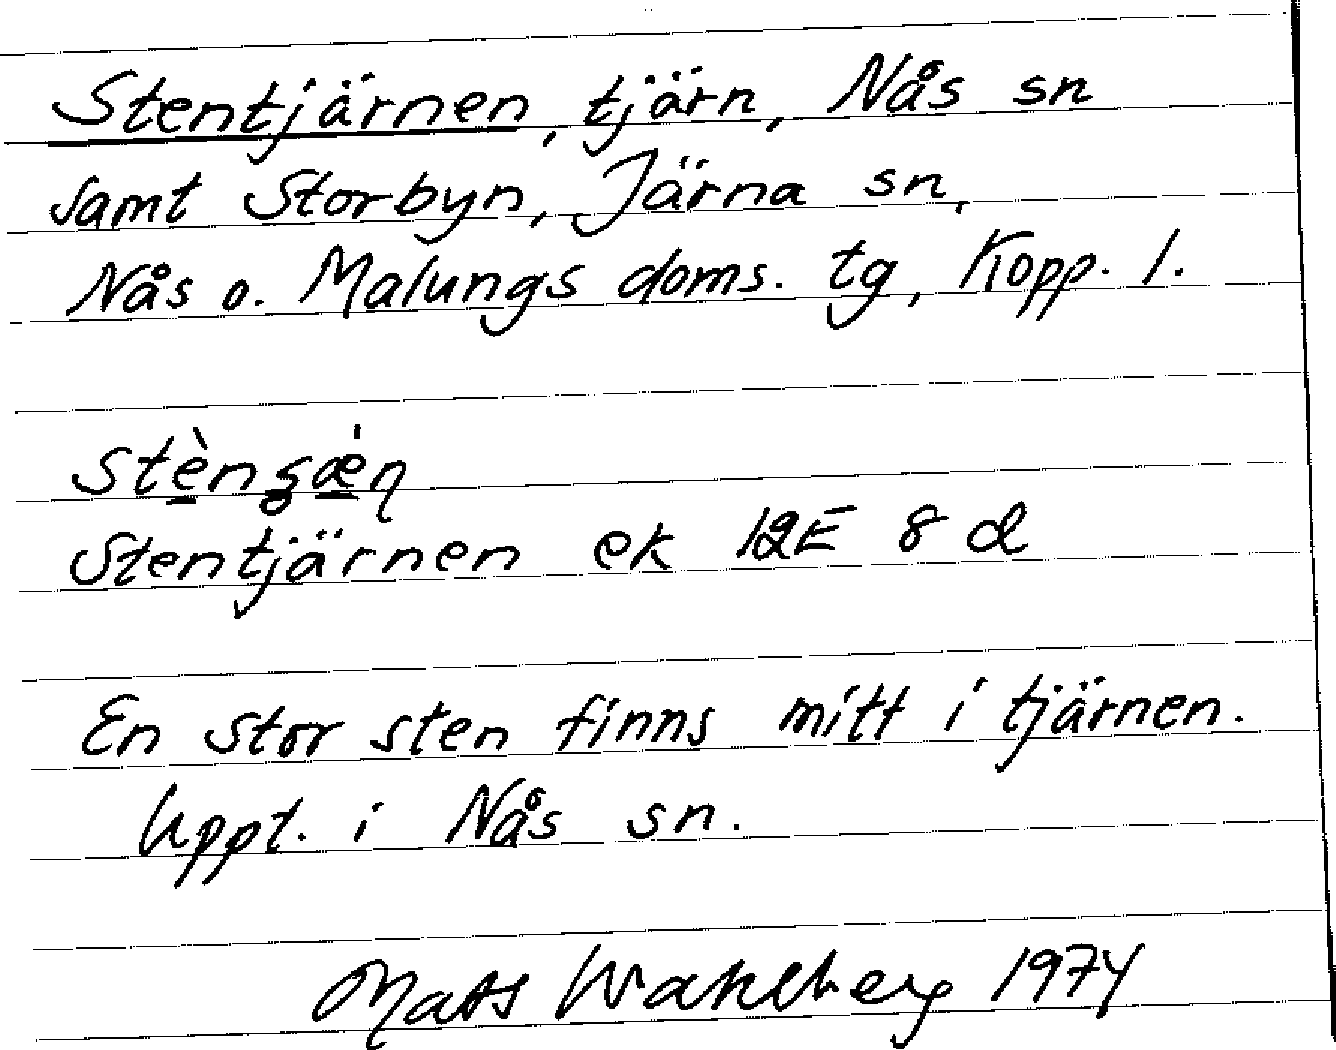 Stentjärnen, tjärn, Nås sn
samt Storbyn, Järna sn,
Nås o. Malungs doms. tg, Kopp. l.
Stentjärnen ek 12E 8 d
En stor sten finns mitt i tjärnen.
Uppt. i Nås sn.
Mats Wahlberg 1974